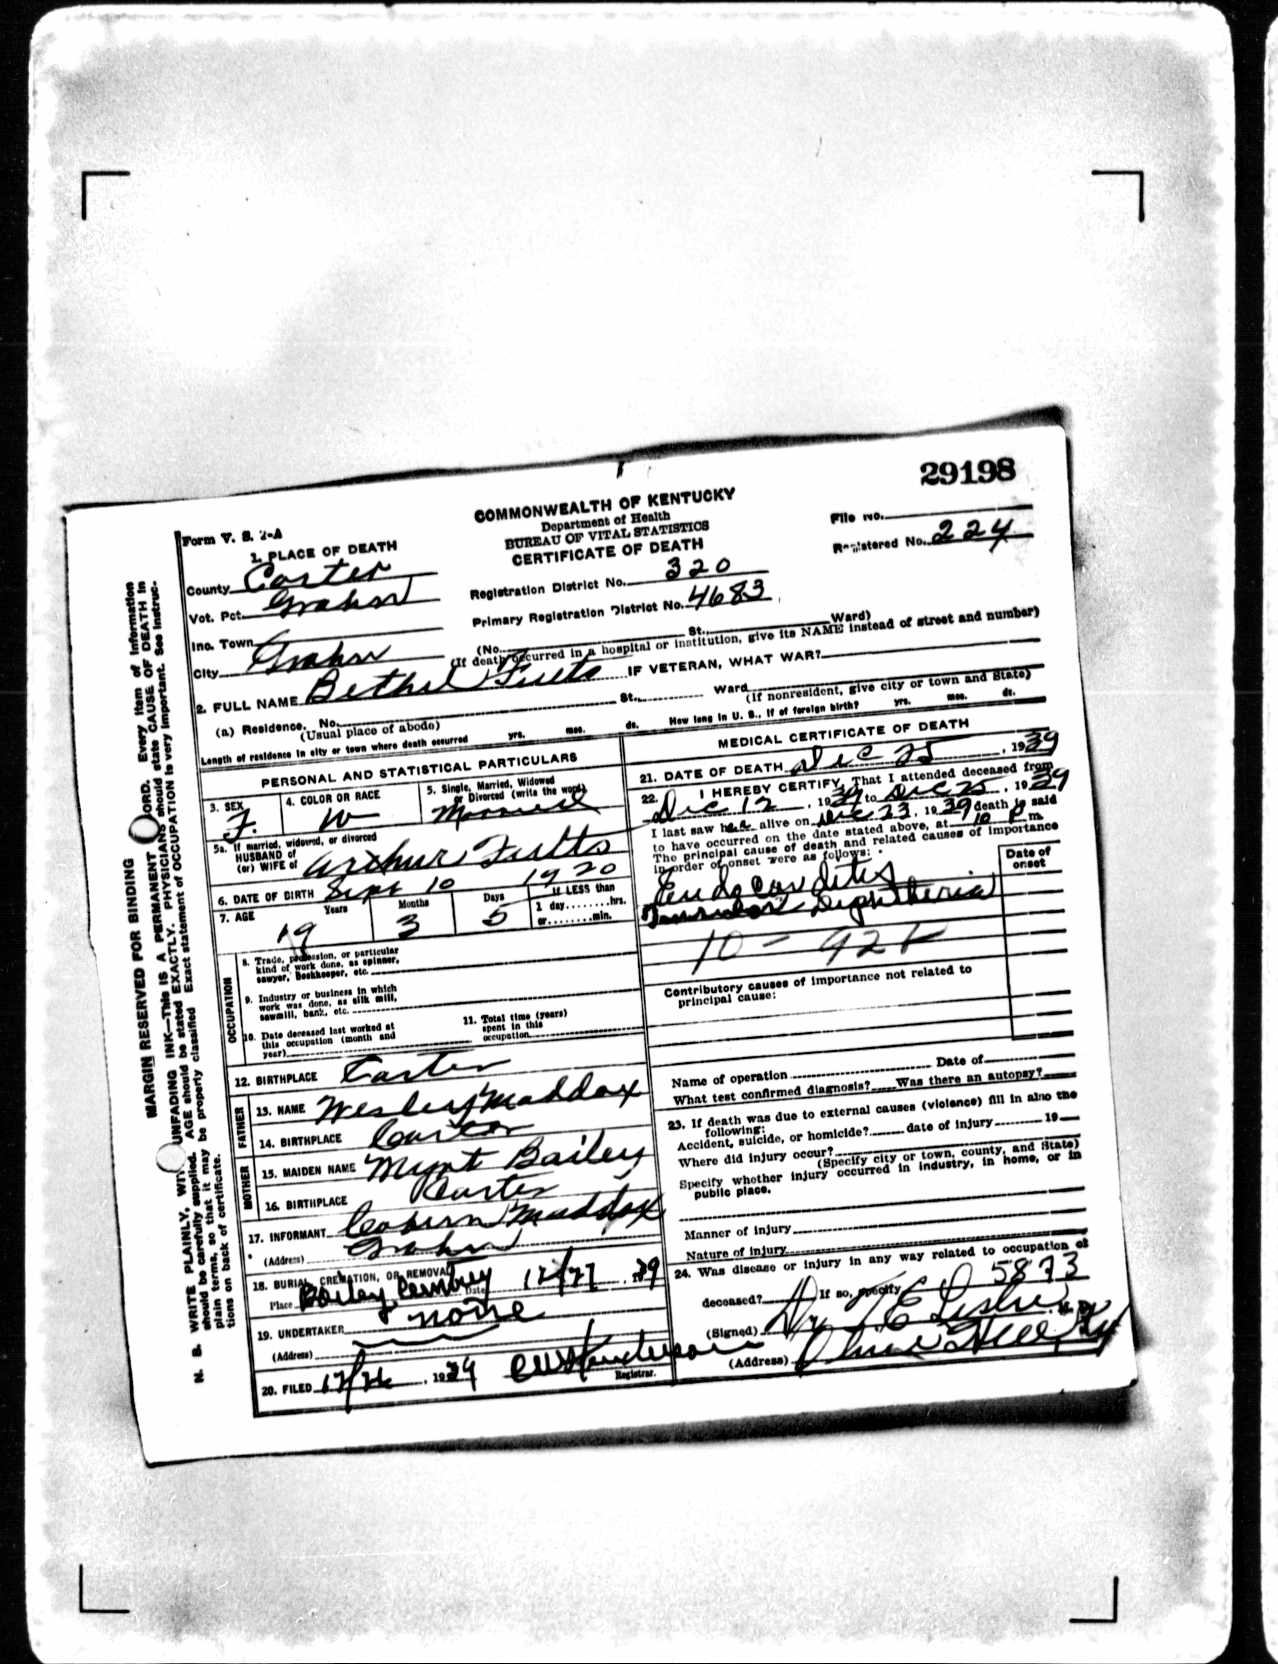 29198
Form V. S. 1-A
COMMONWEALTH OF KENTUCKY
Department of Health
BUREAU OF VITAL STATISTICS
CERTIFICATE OF DEATH
File No.
Registered No. 224
1. PLACE OF DEATH
County Carter
Vot. Pct. Grahn
Inc. Town
City Grahn
Registration District No. 320
Primary Registration District No. 4683
(No. St. Ward)
(If death occurred in a hospital or institution, give its NAME instead of street and number)
2. FULL NAME Bethel Fultz IF VETERAN, WHAT WAR?
(a) Residence, No. St. Ward
(Usual place of abode) (If nonresident, give city or town and State)
Length of residence in city or town where death occurred yrs. mos. ds. How long in U. S., if of foreign birth? yrs. mos. ds.
PERSONAL AND STATISTICAL PARTICULARS
3. SEX F.
4. COLOR OR RACE W
5. Single, Married, Widowed or Divorced (write the word) Married
5a. If married, widowed, or divorced
HUSBAND of
(or) WIFE of Arthur Fultts
6. DATE OF BIRTH Sept 10 1920
7. AGE Years 19 Months 3 Days 5 If LESS than 1 day hrs. or min.
OCCUPATION
8. Trade, profession, or particular kind of work done, as spinner, sawyer, bookkeeper, etc.
9. Industry or business in which work was done, as silk mill, sawmill, bank, etc.
10. Date deceased last worked at this occupation (month and year)
11. Total time (years) spent in this occupation
12. BIRTHPLACE Carter
FATHER
13. NAME Wesley Maddox
14. BIRTHPLACE Carter
MOTHER
15. MAIDEN NAME Myrt Bailey
16. BIRTHPLACE Carter
17. INFORMANT Maddox
(Address) Grahn
18. BURIAL, CREMATION, OR REMOVAL
Place Bailey Cemtrey Date 12/27, 1939
19. UNDERTAKER none
(Address)
20. FILED 12/26, 1939 Henderson
Registrar.
MEDICAL CERTIFICATE OF DEATH
21. DATE OF DEATH Dec 25, 1939
22. I HEREBY CERTIFY, That I attended deceased from
Dec 12, 1939 to Dec 25, 1939
I last saw her alive on Dec 23, 1939 death is said
to have occurred on the date stated above, at 10 P m.
The principal cause of death and related causes of importance
in order of onset were as follows:
Date of onset
Endocarditis
Tonsular Diphtheria
10 - 92
Contributory causes of importance not related to
principal cause:
Name of operation Date of
What test confirmed diagnosis? Was there an autopsy?
23. If death was due to external causes (violence) fill in also the
following:
Accident, suicide, or homicide? date of injury 19
Where did injury occur?
(Specify city or town, county, and State)
Specify whether injury occurred in industry, in home, or in
public place.
Manner of injury
Nature of injury
24. Was disease or injury in any way related to occupation of
deceased? If so, specify 5873
(Signed) Dr. Leslie M. D.
(Address) Olive Hill Ky
MARGIN RESERVED FOR BINDING
N. B. WRITE PLAINLY, WITH UNFADING INK—This IS A PERMANENT RECORD. Every item of information
should be carefully supplied. AGE should be stated EXACTLY. PHYSICIANS should state CAUSE OF DEATH in
plain terms, so that it may be properly classified Exact statement of OCCUPATION is very important. See instruc-
tions on back of certificate.